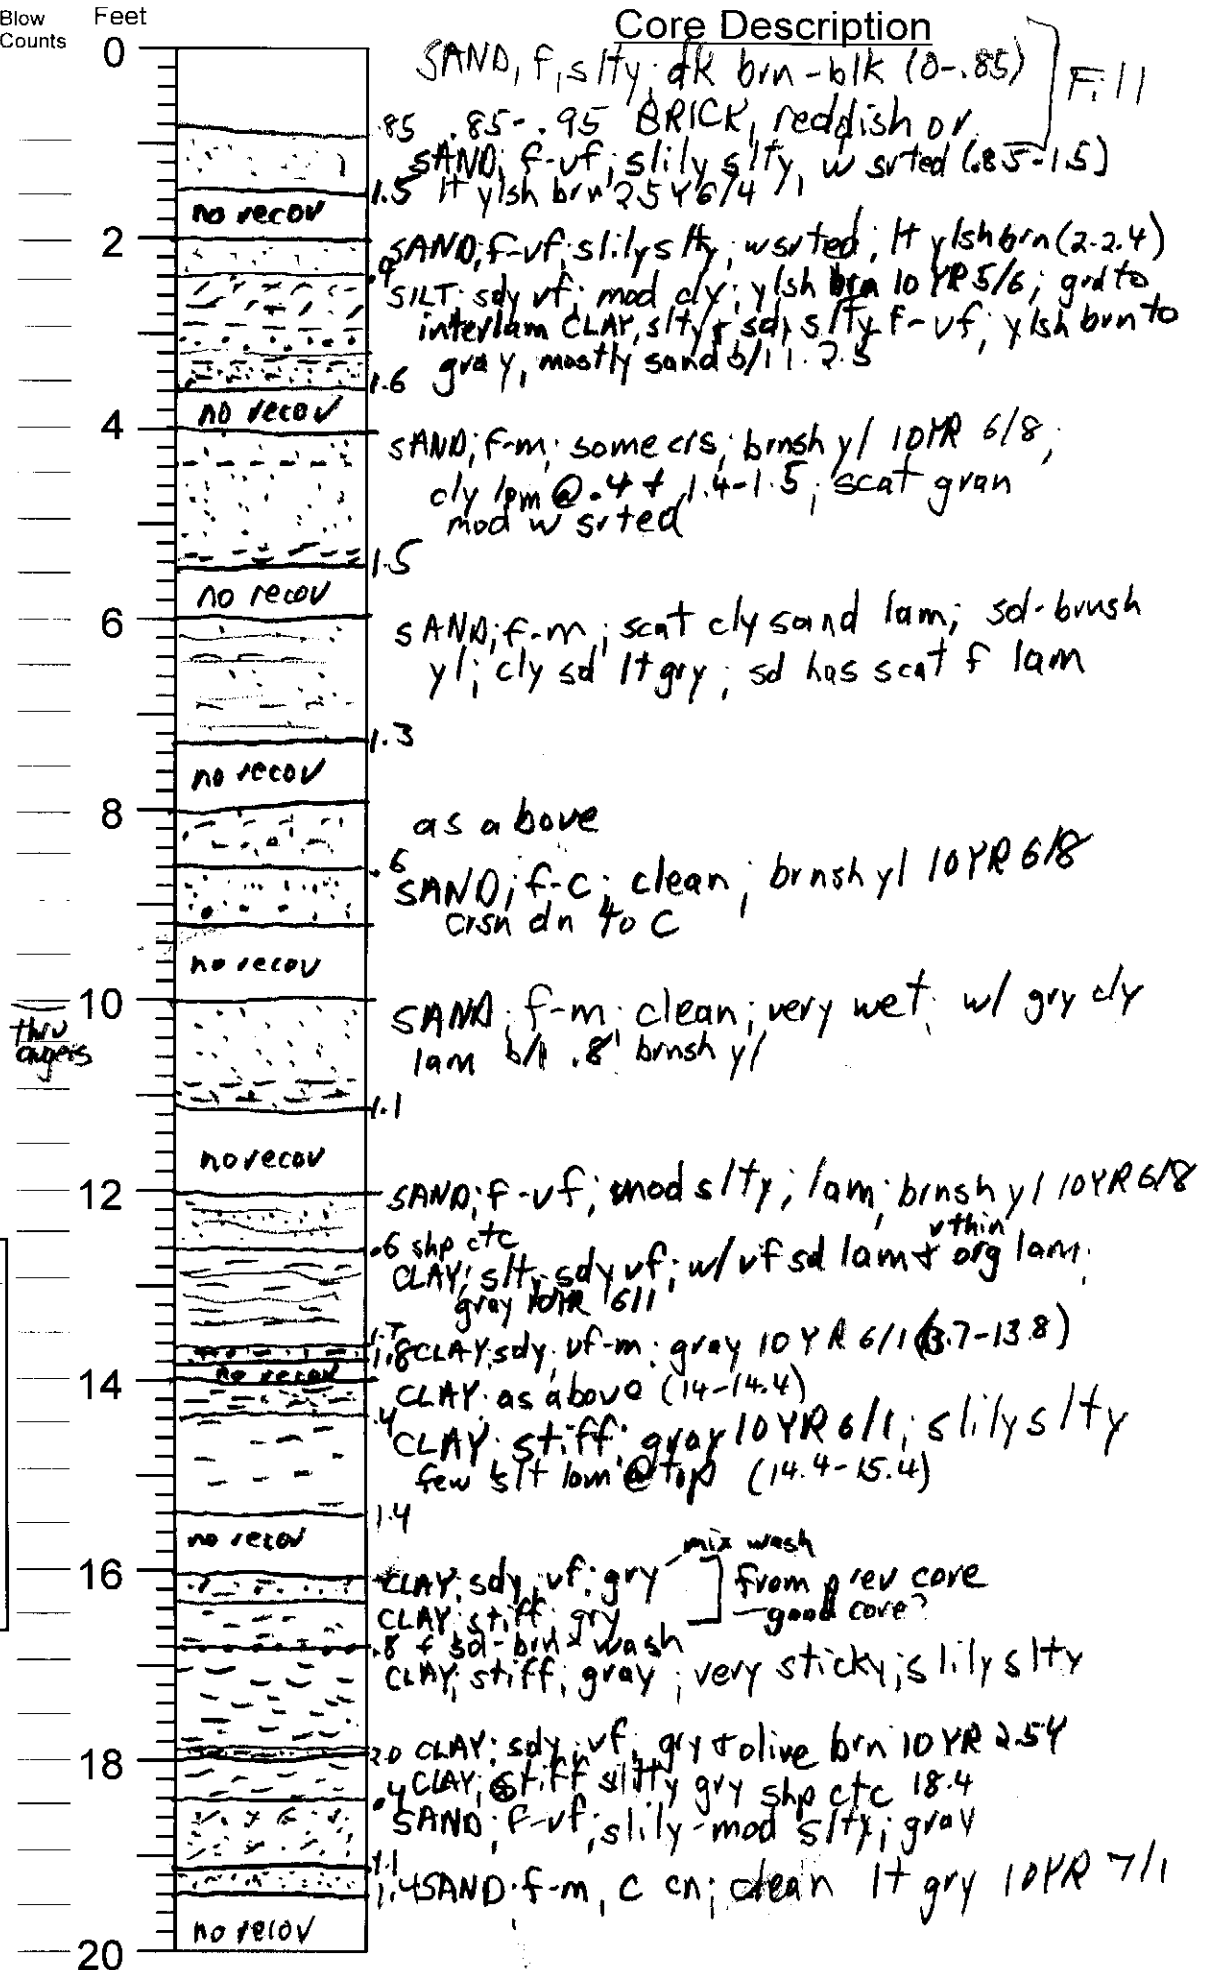 Blow Counts
Feet
Core Description
0
SAND, f, slty; dk brn-blk (0-.85)
Fill
.85 .85-.95 BRICK, reddish or
SAND; f-vf; slily slty, w srted (.85-1.5)
1.5 lt ylsh brn 2.5Y6/4
no recov
2
SAND; f-vf; slily slty; w srted; lt ylsh brn (2-2.4)
.4
SILT; sdy vf; mod cly; ylsh brn 10YR 5/6; grd to
interlam CLAY, slty + sd, slty f-vf; ylsh brn to
1.6 gray, mostly sand b/l 1.2.5
no recov
4
SAND; f-m; some crs; brnsh yl 10YR 6/8;
cly lam @ .4 + 1.4-1.5; scat gran
mod w srted
1.5
no recov
6
SAND; f-m; scat cly sand lam; sd-brnsh
yl; cly sd lt gry; sd has scat f lam
1.3
no recov
8
as above
.6
SAND; f-c; clean; brnsh yl 10YR 6/8
crsn dn to c
no recov
10
thru augers
SAND; f-m; clean; very wet; w/ gry cly
lam b/l .8' brnsh yl
1.1
no recov
12
SAND; f-vf; mod slty; lam; brnsh yl 10YR 6/8
.6 shp ctc
vthin
CLAY; slt-sdy vf; w/ vf sd lam & org lam.
gray 10YR 6/1
1.7
1.8 CLAY; sdy, vf-m; gray 10YR 6/1 (13.7-13.8)
no recov
14
CLAY; as above (14-14.4)
.4
CLAY; stiff; gray 10YR 6/1; slily slty
few slt lam @ top (14.4-15.4)
1.4
no recov
mix wash
16
CLAY; sdy, vf; gry
from prev core
CLAY; stiff; gry
good core?
.8 f sd-brn wash
CLAY; stiff; gray; very sticky; slily slty
18
2.0 CLAY; sdy, vf, gry & olive brn 10YR 2.5Y
.4 CLAY; stiff slty gry shp ctc 18.4
SAND; f-vf; slily-mod slty; gray
1.1
1.4 SAND; f-m, c cn; clean lt gry 10YR 7/1
no recov
20